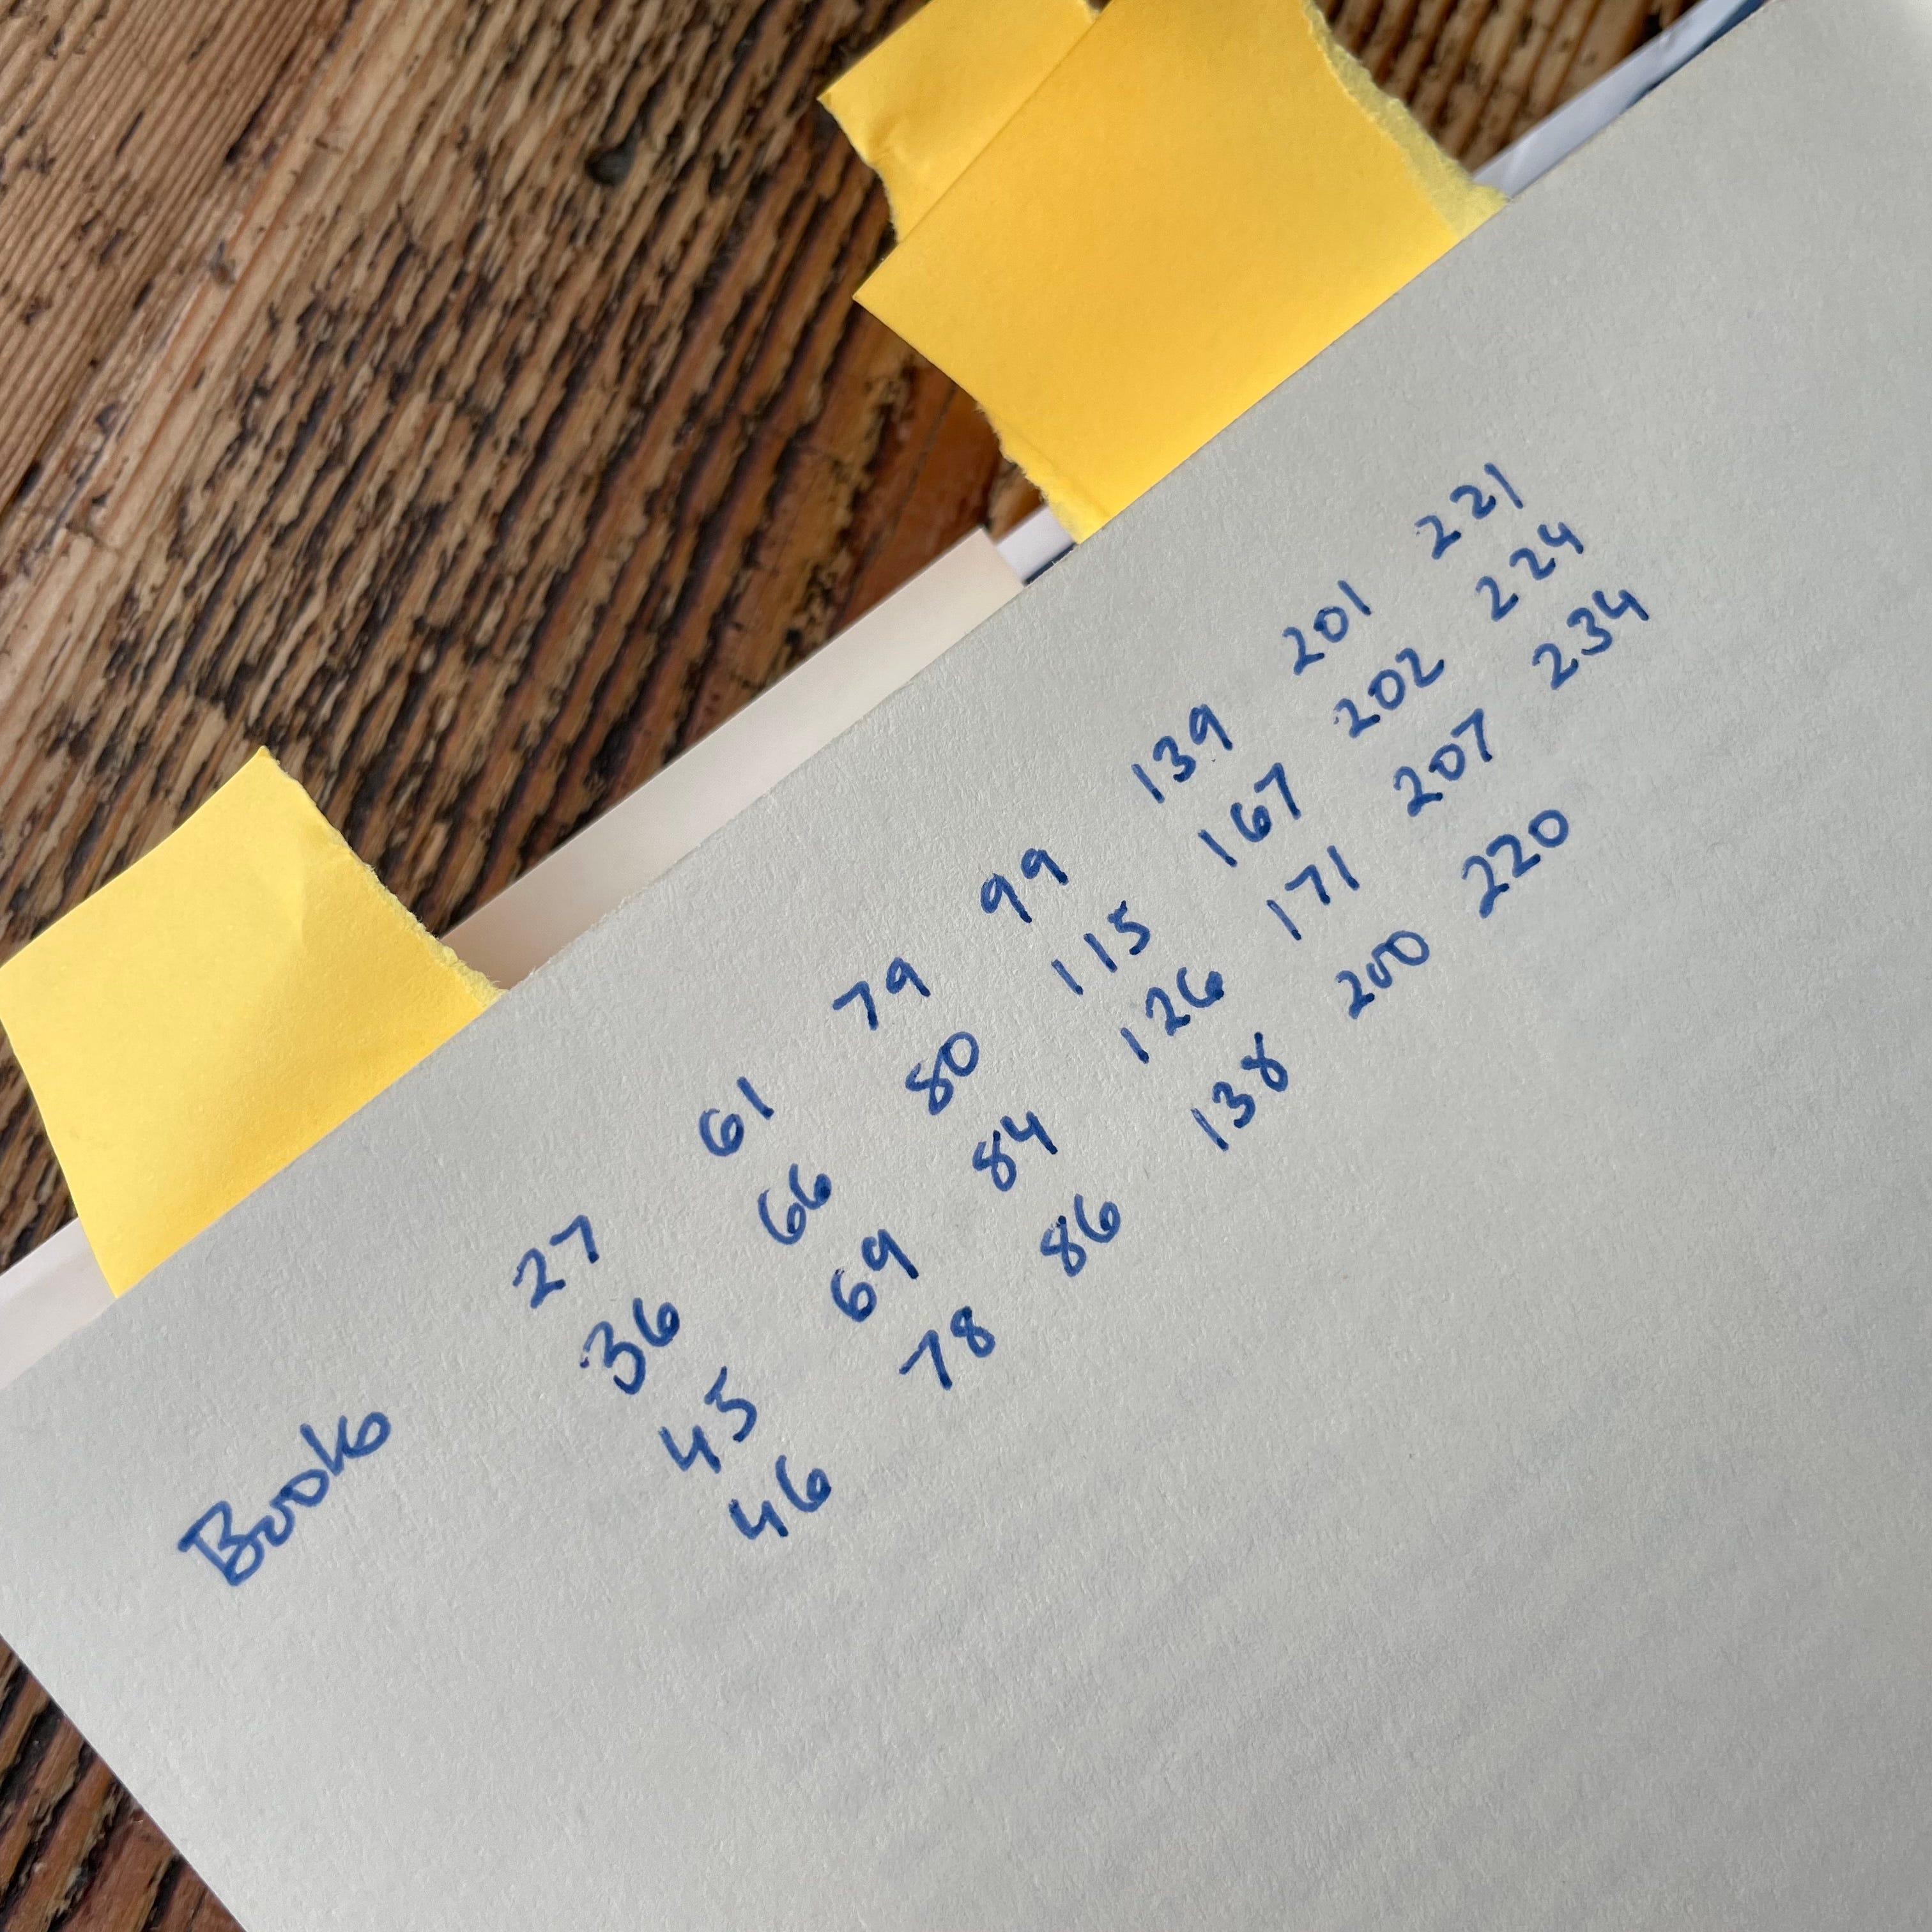 Books 27 61 79 99 139 201 221
36 66 80 115 167 202 224
45 69 84 126 171 207 234
46 78 86 138 200 220